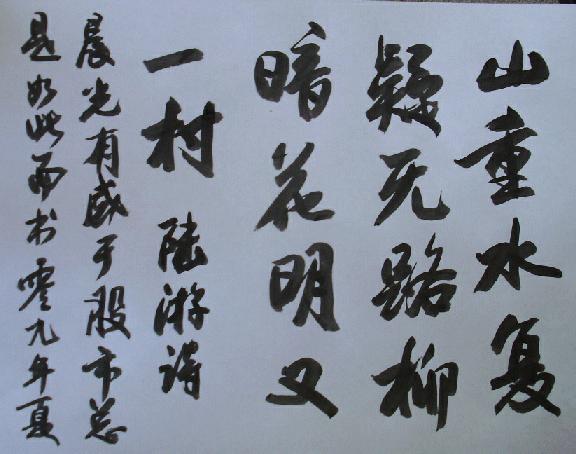 山重水复
疑无路柳
暗花明又
一村 陆游诗
晨光有感于股市总
是如此而书零九年夏